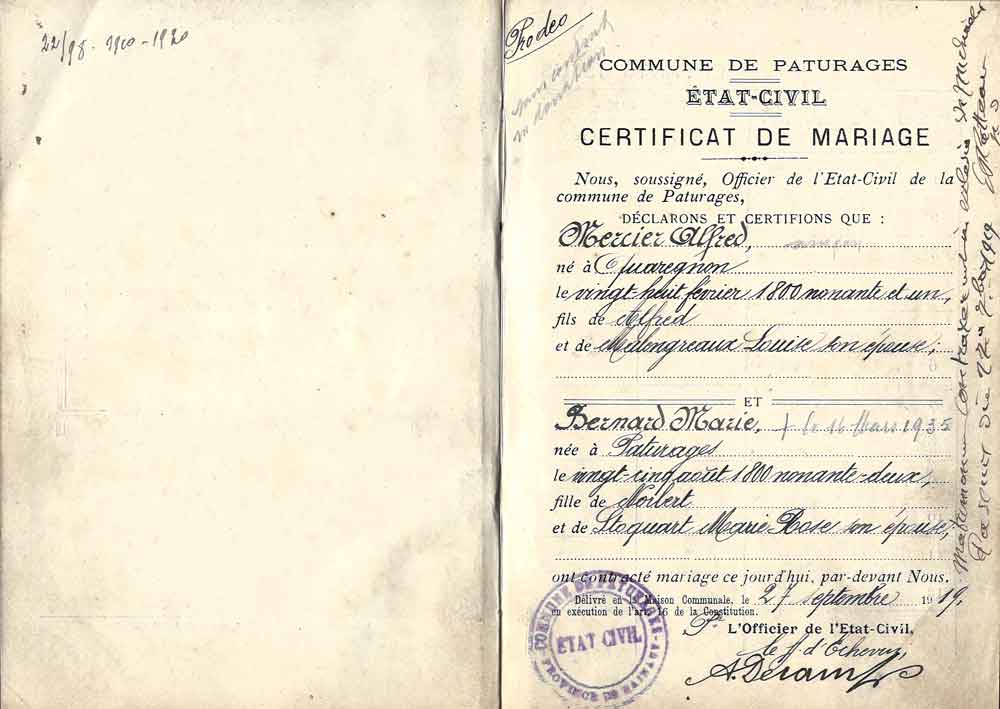 22/98 - 1910 - 1920
Prodeo
COMMUNE DE PATURAGES
ÉTAT-CIVIL
CERTIFICAT DE MARIAGE
Nous, soussigné, Officier de l'Etat-Civil de la
commune de Paturages,
DÉCLARONS ET CERTIFIONS QUE :
Mercier Alfred,
né à Quaregnon
le vingt-huit février 1800 nonante et un,
fils de Alfred
et de Malengreaux Louise son épouse;
ET
Bernard Marie, † le 16 Mars 1935
née à Paturages
le vingt-cinq août 1800 nonante-deux,
fille de Norbert
et de Stoquart Marie Rose son épouse,
ont contracté mariage ce jourd'hui, par-devant Nous.
Délivré en la Maison Communale, le 27 septembre 1919.
en exécution de l'art. 16 de la Constitution.
Pr L'Officier de l'Etat-Civil,
d'Echevin,
COMMUNE DE PATURAGES
ETAT CIVIL
PROVINCE DE HAINAUT
Matrimonium contraxerunt in ecclesia